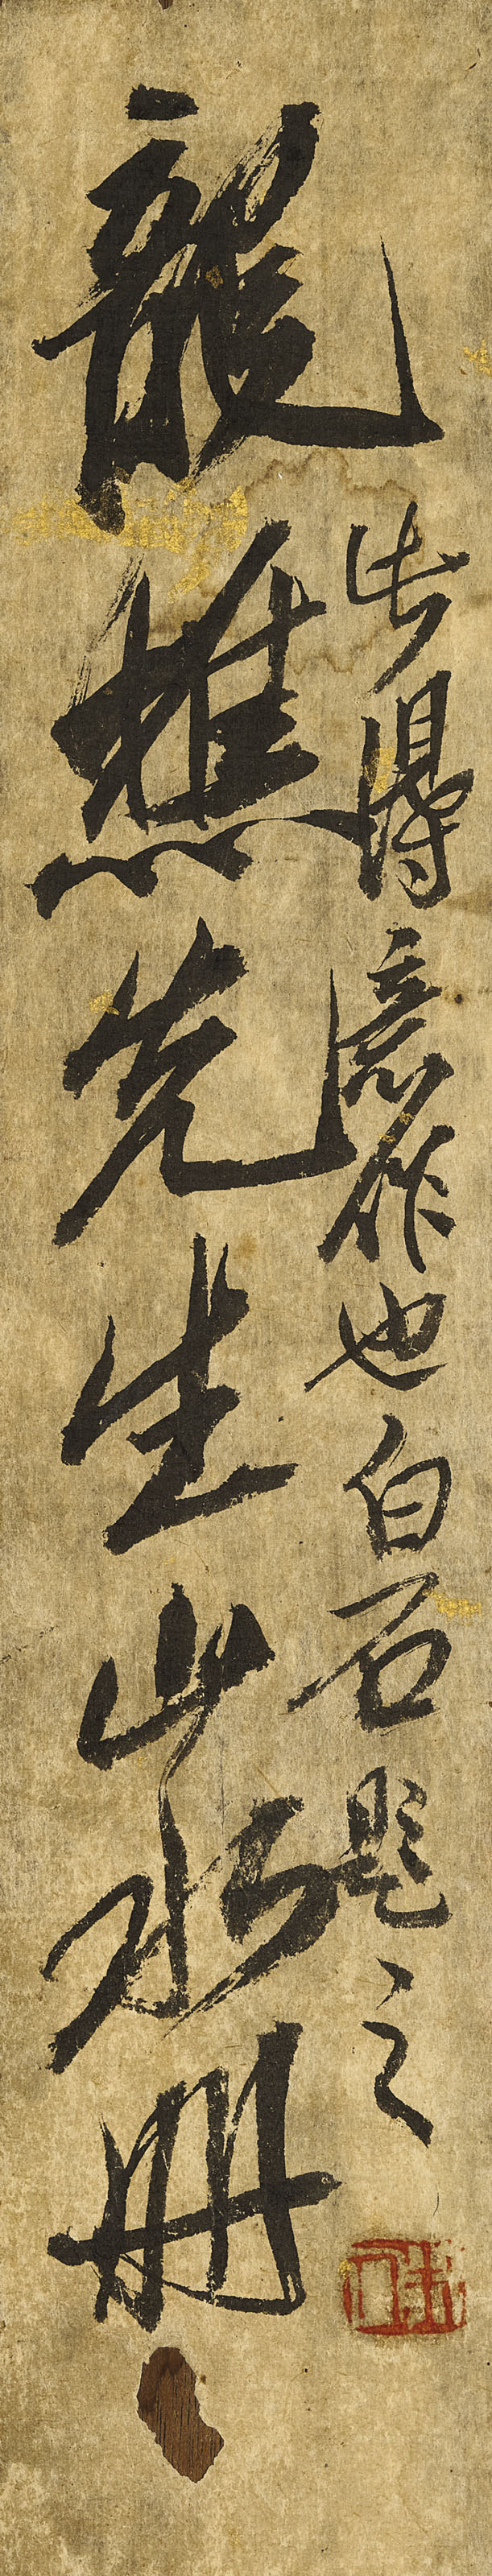 龍樵先生山水册
此得意作也白石題之